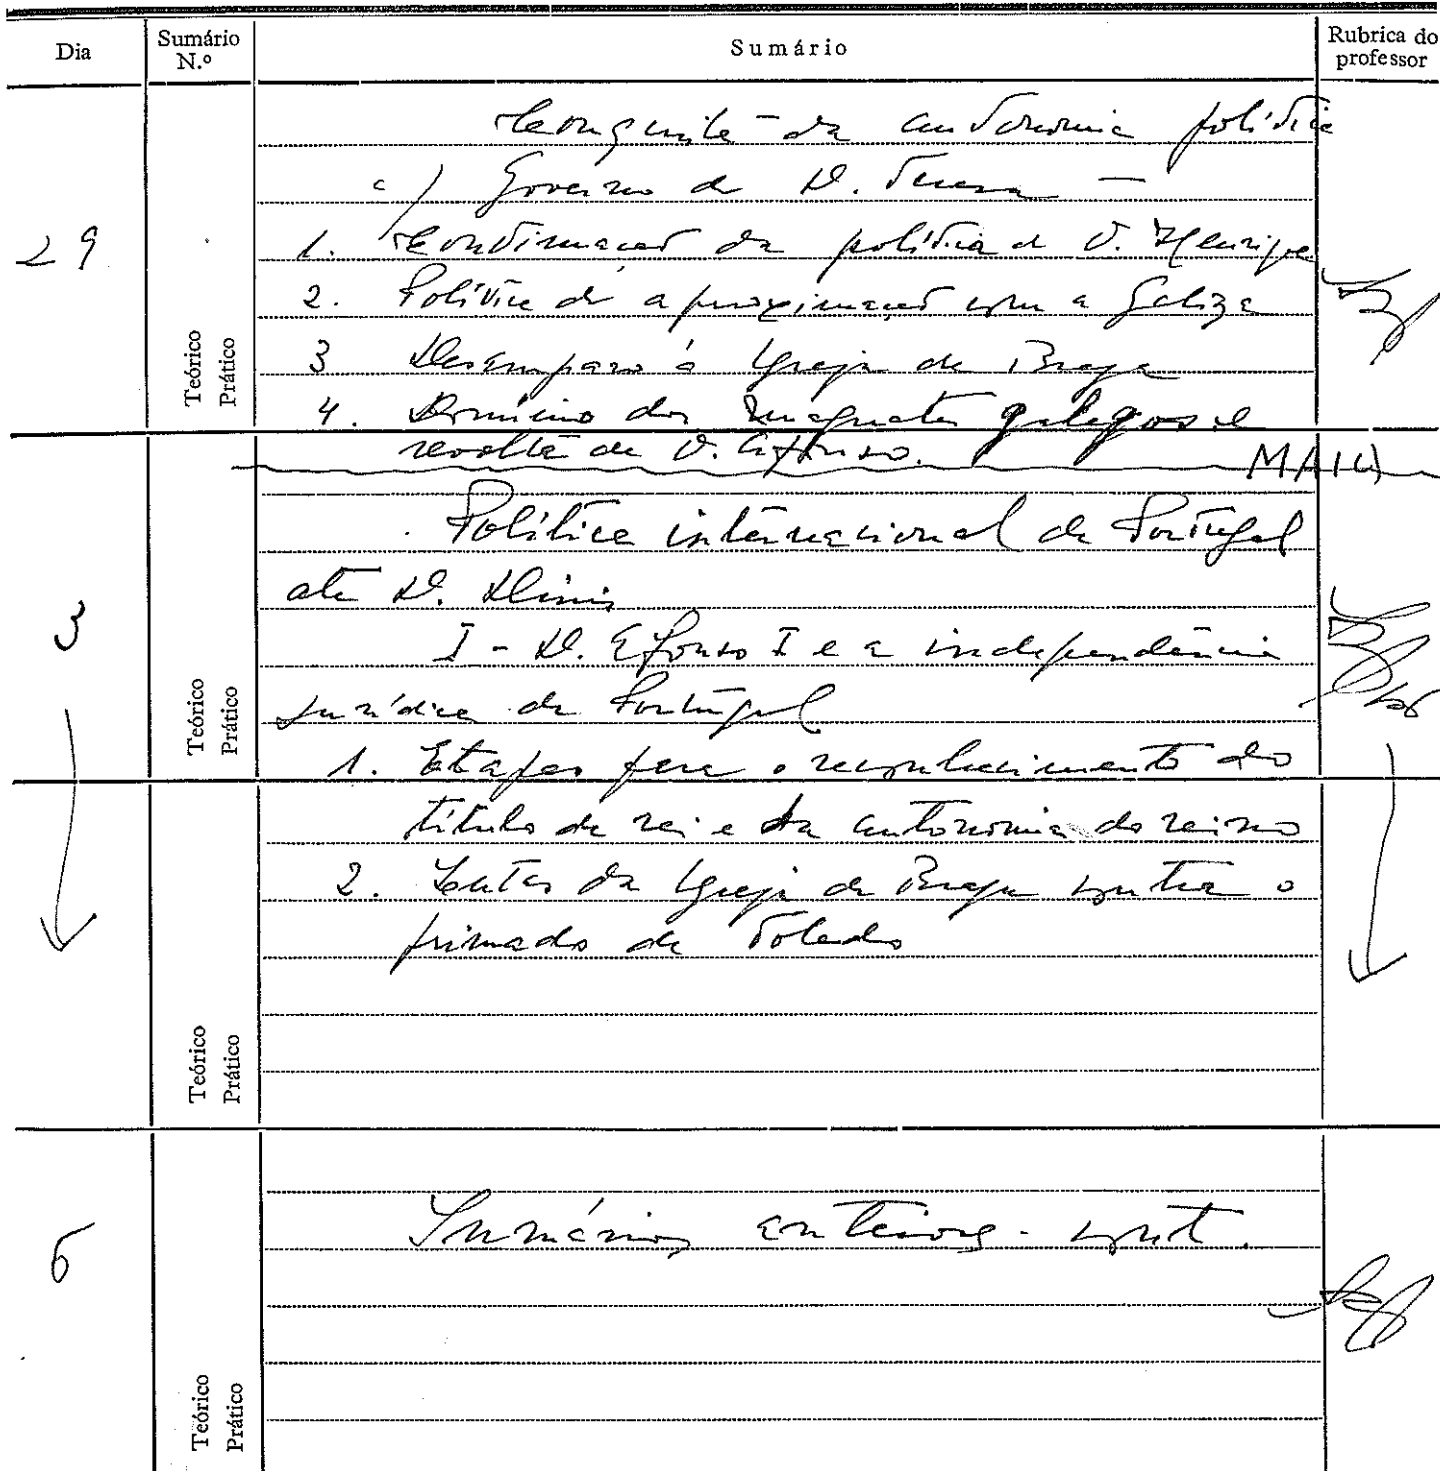 Dia
Sumário N.º
Sumário
Rubrica do professor
Conquista da autonomia política
c) Governo de D. Teresa —
29
1. Continuação da política de D. Henrique
2. Política de aproximação com a Galiza
3 Desamparo à Igreja de Braga
4. Domínio dos magnates galegos e
revolta de D. Afonso.
Teórico
Prático
MAIO
Política internacional de Portugal
até D. Dinis
3
I - D. Afonso I e a independência
jurídica de Portugal
1. Etapas para o reconhecimento do
Teórico
Prático
título de rei e da autonomia do reino
2. Lutas da Igreja de Braga contra o
primado de Toledo
Teórico
Prático
6
Sumários anteriores - cont.
Teórico
Prático